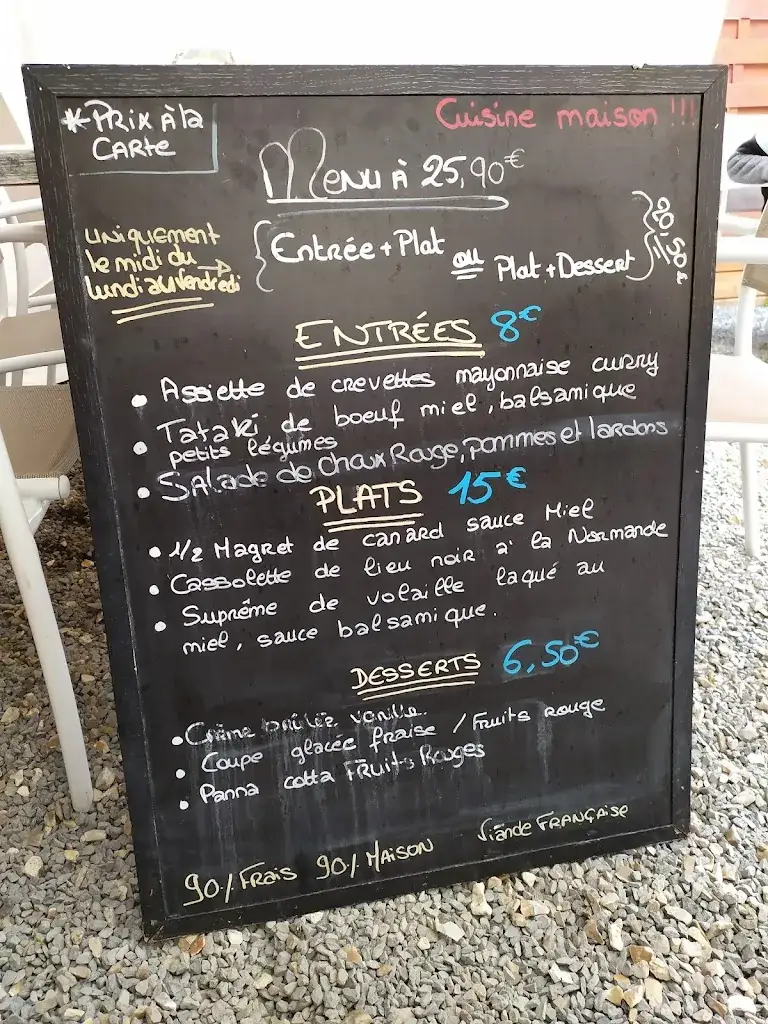 *PRIX À la
CARTE
Cuisine maison !!!
Menu À 25,90€
uniquement
le midi du
lundi au vendredi
Entrée + Plat ou Plat + Dessert
20,50€
ENTRÉES 8€
• Assiette de crevettes mayonnaise curry
• Tataki de boeuf miel, balsamique
petits légumes
• Salade de Choux Rouge, pommes et lardons
PLATS 15€
• 1/2 Magret de canard sauce Miel
• Cassolette de lieu noir à la Normande
• Suprême de volaille laqué au
miel, sauce balsamique.
DESSERTS 6,50€
• Crème brûlée vanille.
• Coupe glacée fraise / Fruits rouge
• Panna cotta FRuits Rouges
90% FRAIS 90% MAISON Viande FRANÇAISE